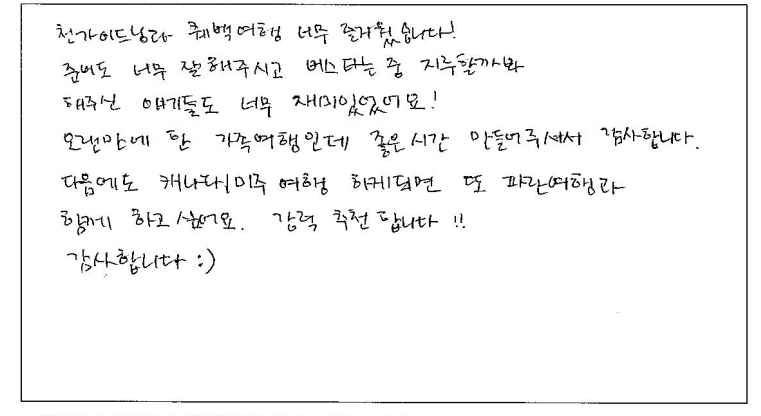 천가이드님과 퀘백여행 너무 즐거웠습니다!
준비도 너무 잘해주시고 버스타는 중 지루할까봐
해주신 얘기들도 너무 재미있었어요!
오랜만에 한 가족여행인데 좋은시간 만들어주셔서 감사합니다.
다음에도 캐나다/미주 여행 하게되면 또 파란여행과
함께 하고싶어요. 강력 추천 합니다!!
감사합니다 :)